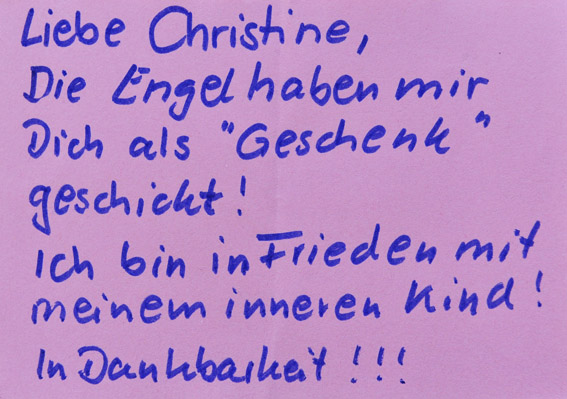 Liebe Christine,
Die Engel haben mir
Dich als "Geschenk"
geschickt!
Ich bin in Frieden mit
meinem inneren Kind!
In Dankbarkeit!!!